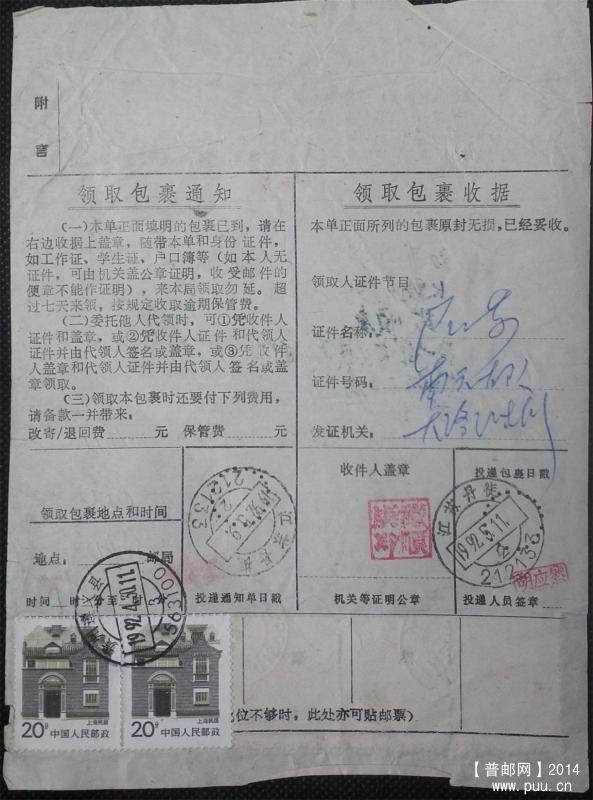 附
言
领取包裹通知
(一)本单正面填明的包裹已到,请在
右边收据上盖章,随带本单和身份证件,
如工作证、学生证、户口簿等(如本人无
证件,可由机关盖公章证明,收受邮件的
便章不能作证明),来本局领取勿延。超
过七天来领,按规定收取逾期保管费。
(二)委托他人代领时,可①凭收件人
证件和盖章,或②凭收件人证件和代领人
证件并由代领人签名或盖章,或③凭收件
人盖章和代领人证件并由代领人签名或盖
章领取。
(三)领取本包裹时还要付下列费用,
请备款一并带来:
改寄/退回费 元 保管费 元
领取包裹地点和时间
地点: 邮局
时间 时 分至 时 分
投递通知单日戳
领取包裹收据
本单正面所列的包裹原封无损,已经妥收。
领取人证件节目
证件名称:
证件号码:
发证机关:
收件人盖章
机关等证明公章
投递包裹日戳
投递人员签章
212133
江苏丹徒
1992.5.11.
212133
胡应
1992.4.30.11.
563100
20分
上海民居
中国人民邮政
20分
上海民居
中国人民邮政
位不够时,此处亦可贴邮票)
【普邮网】2014
www.puu.cn